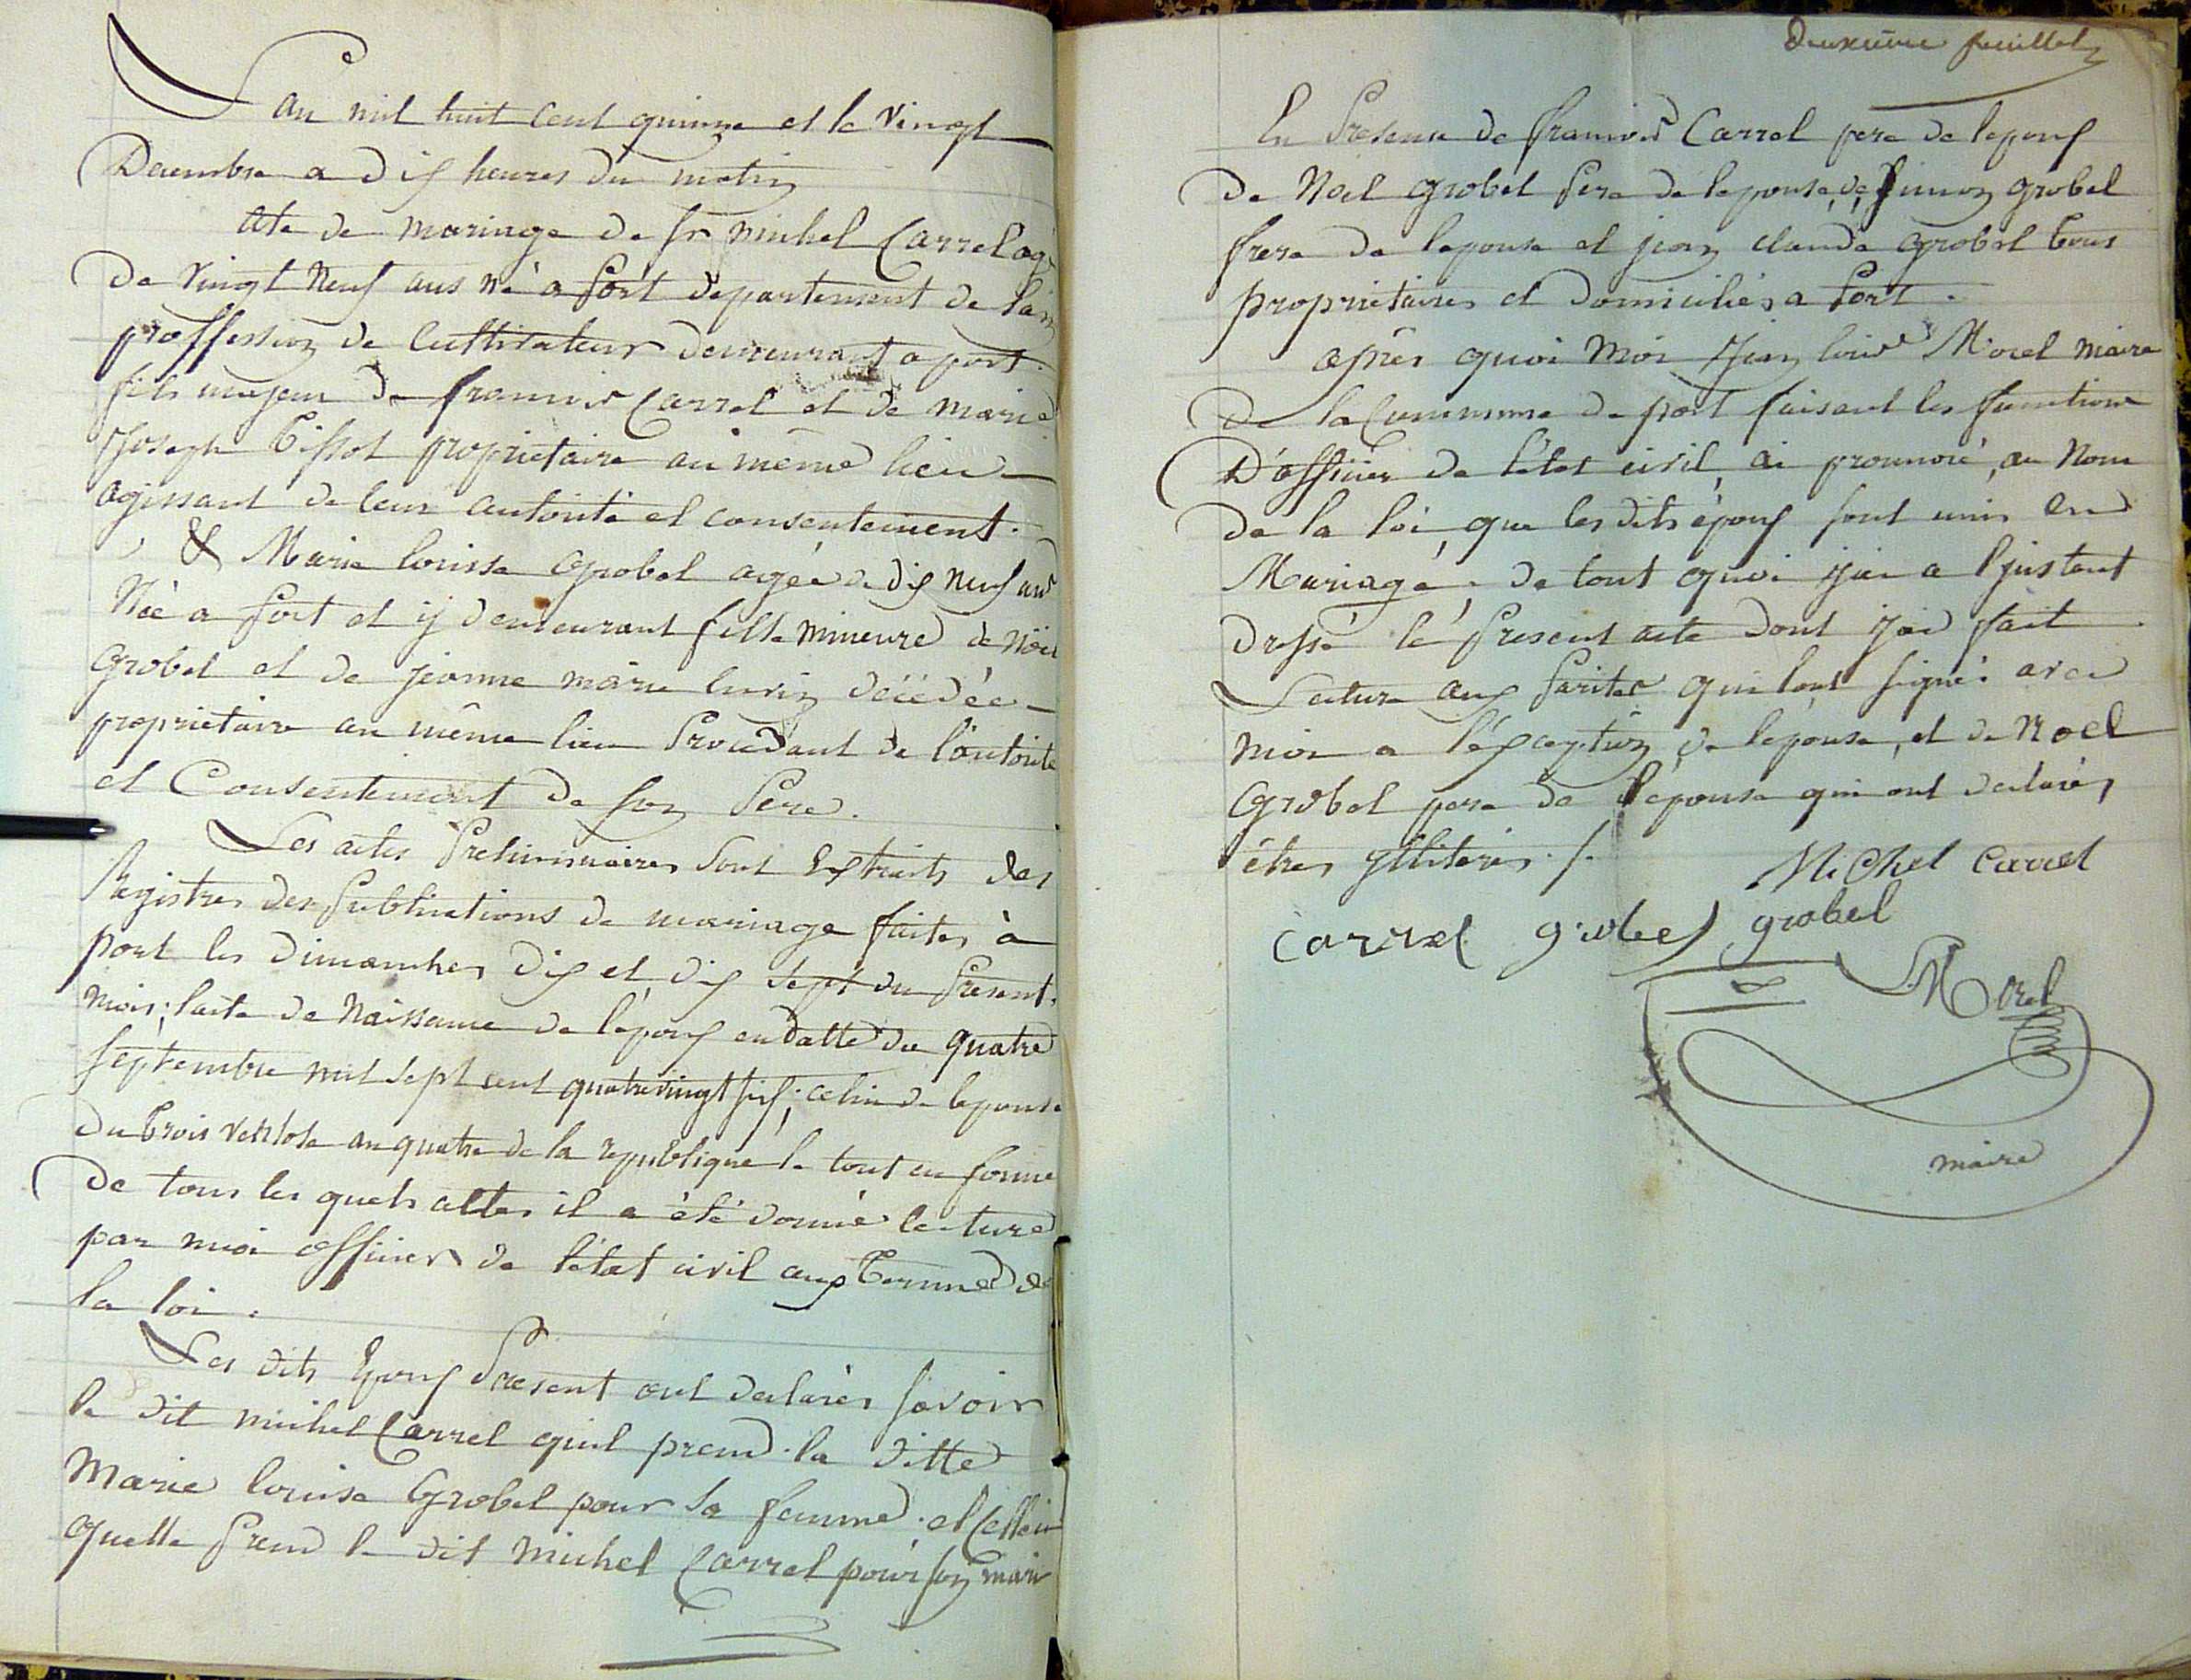 L'an mil huit cent quinze et le vingt
Decembre a dix heures du matin
acte de mariage de Sr michel Carrel agé
de vingt neuf ans né a Port departement de l'ain
proffession de Cultivateur demeurant a port.
fils majeur de francois Carrel et de marie
Joseph Tissot proprietaire au même lieu
agissant de leur autorité et consentement.
& Marie louise Grobel agée de dix neuf ans
Née a Port et y demeurant fille mineure de Noël
Grobel et de jeanne marie décédée
proprietaire au même lieu Procedant de l'autorité
et Consentement de son Pere.
Les actes Preliminaires sont Extraits des
Registres des Publications de mariage faites à
port les dimanches dix et dix sept du Present
mois; l'acte de Naissance de l'epoux en datte du quatre
septembre mil sept cent quatrevingt six; celui de lepouse
du trois ventose an quatre de la republique le tout en forme
de tous les quels actes il a été donné lecture
par moi officier de l'état civil aux termes de
la loi.
Les dits Epoux Present ont declarés savoir
le dit michel Carrel quil prend la ditte
Marie louise Grobel pour sa femme. et Celleci
quelle Prend le dit michel Carrel pour son mari
Deuxième feuillet
En Presence de francois Carrel pere de lepoux
de Noel Grobel Pere de lepouse, de grobel
frere de lepouse et jean claude Grobel tous
proprietaires et domiciliés a Port.
après quoi moi Jean louis Morel maire
de la Commune de port faisant les fonctions
D'officier de l'état civil, ai prononcé, au Nom
de la loi, que les dits époux sont unis en
Mariage. de tout quoi j'ai a l'jnstant
dressé le Present acte dont j'ai fait
Lecture aux Parties qui l'ont signé avec
moi a l'éxception de lepouse, et de Noel
Grobel pere de lepouse qui ont declarés
être jlliteres ./.
Michel Carrel
Carrel grobel grobel
Morel
maire